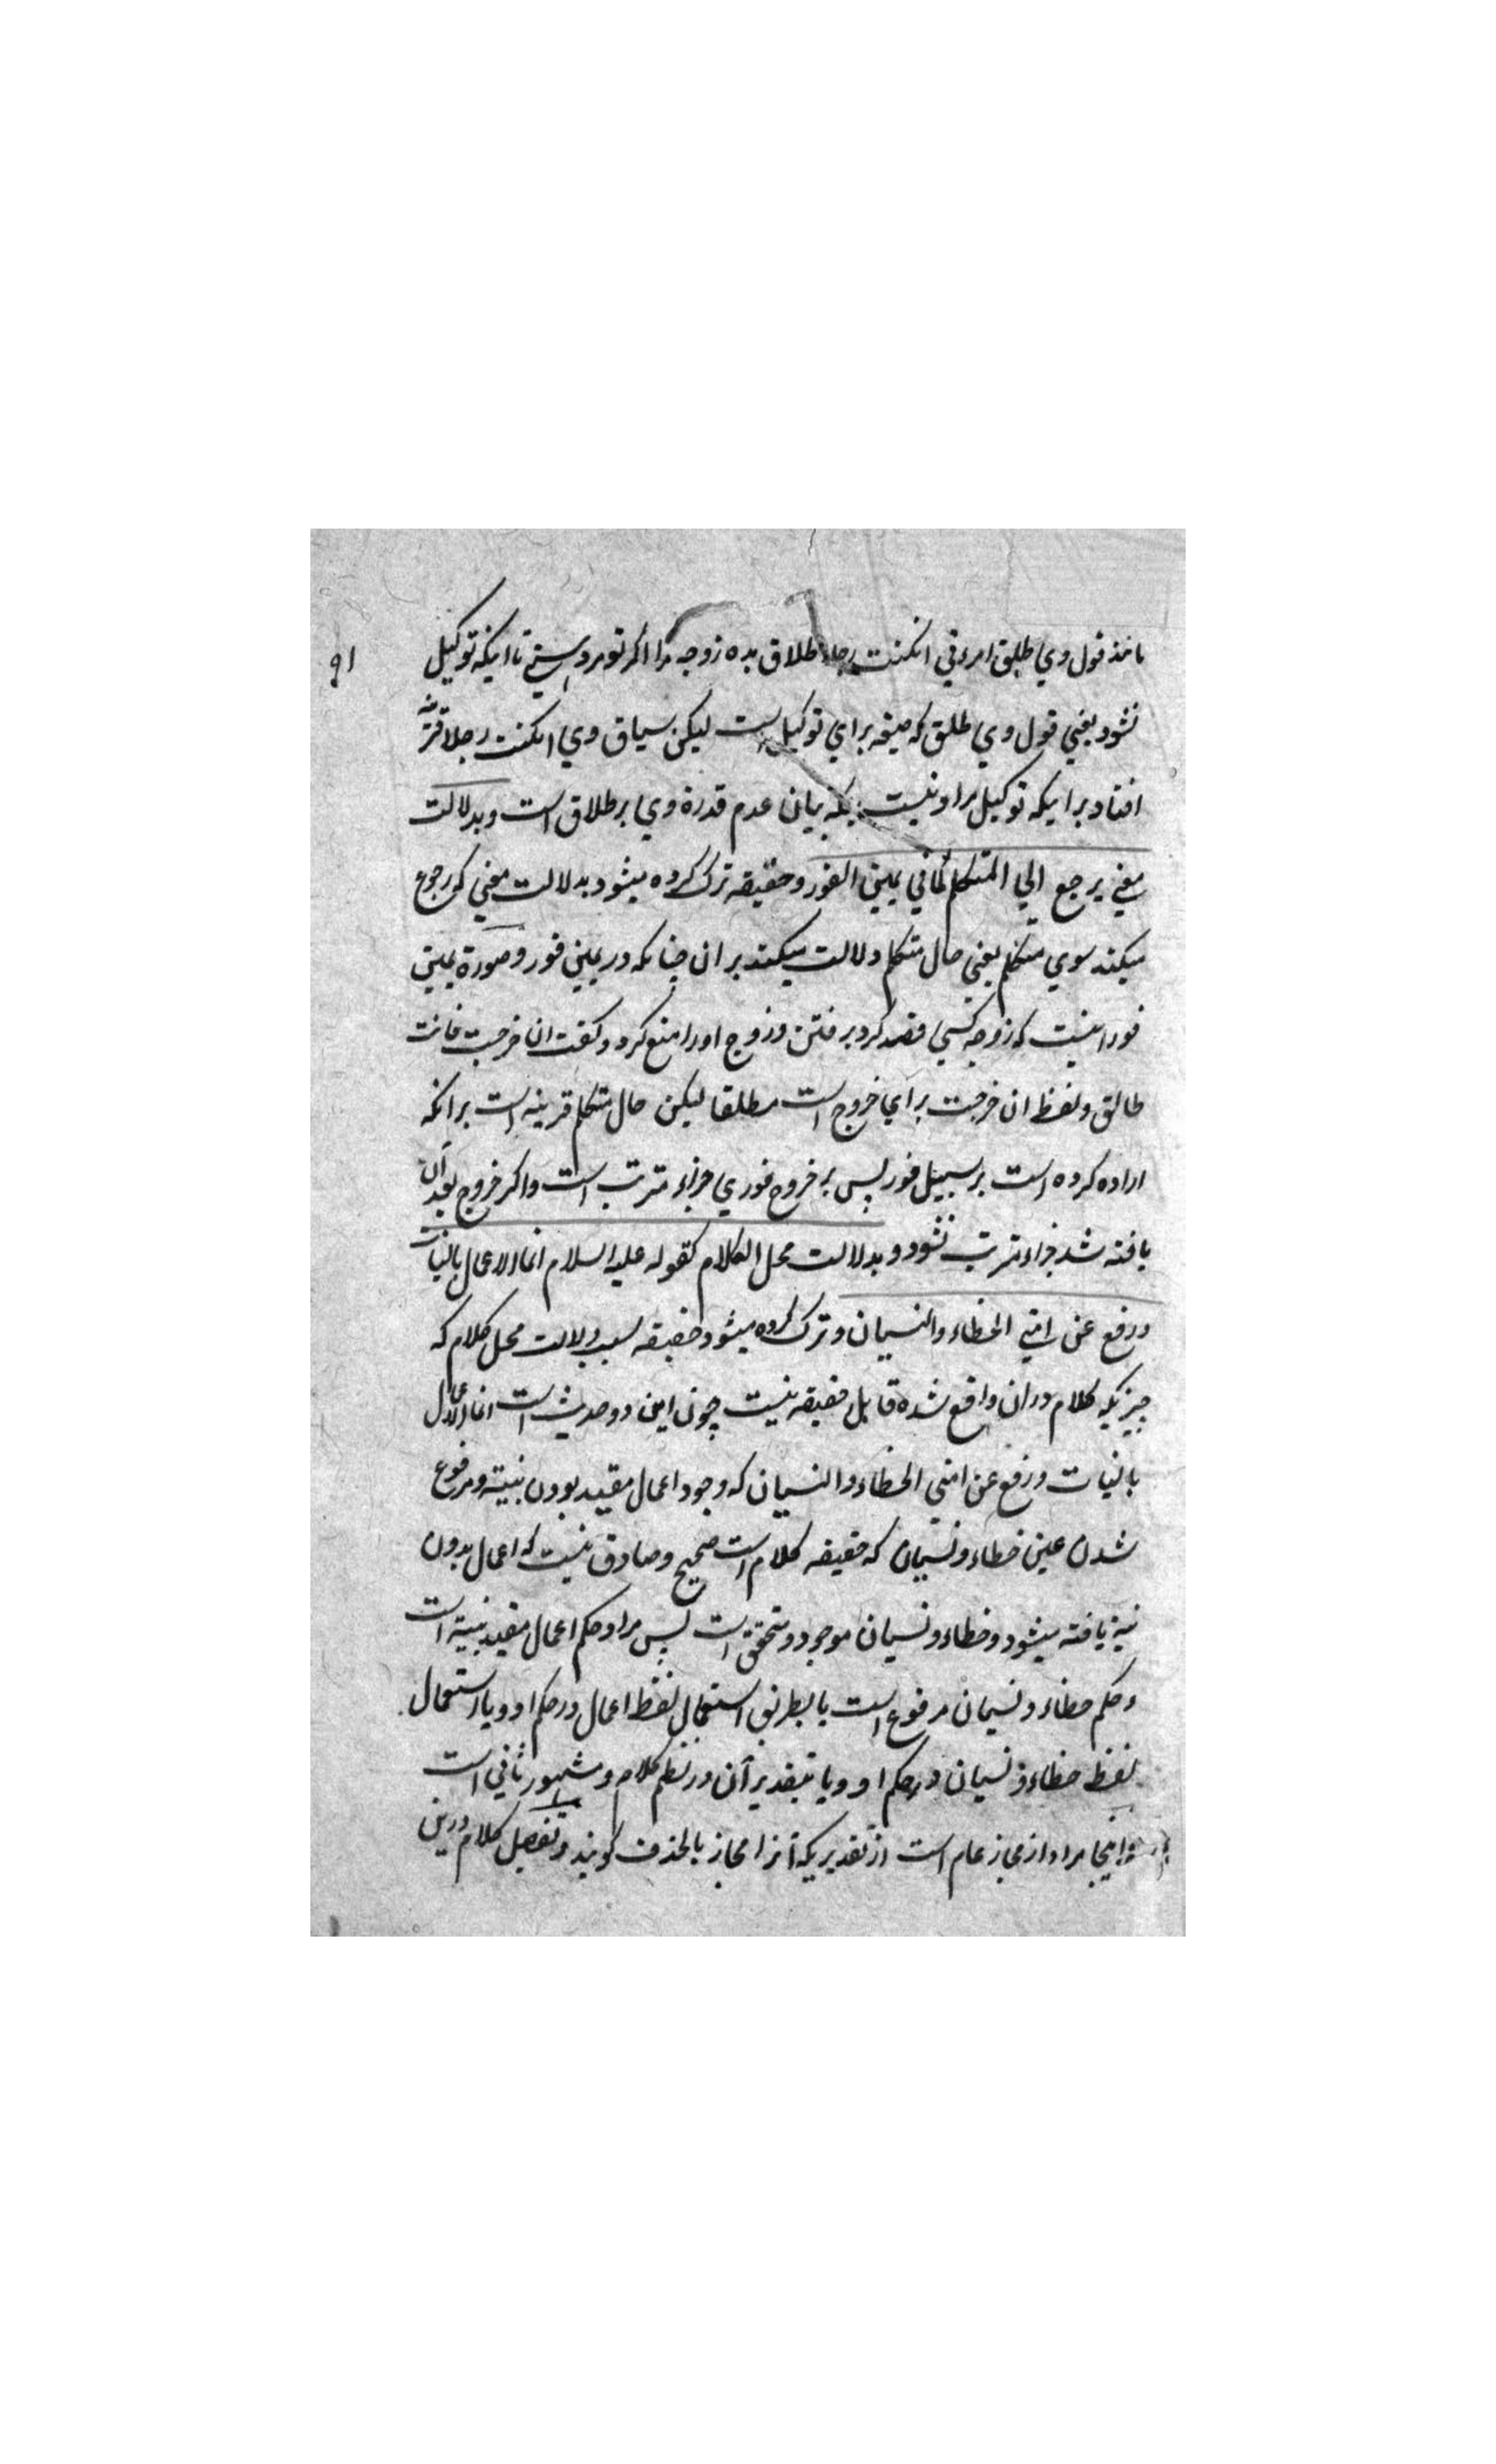 ۹۱
مانند قول وي طلق امرءتي انكنت رجلا طلاق بده زوجه مرا اكر تو مرد هستي تا اينكه توكيل
نشود يعني قول وي طلق كه صيغه براي توكيل است ليكن سياق وي انكنت رجلا قرينه
افتاد برا يكه توكيل مراد نيست بلكه بيان عدم قدرة وي بر طلاق است وبدلالت
معني يرجع الي المتكلم كما في يمين الفور وحقيقه ترك كرده ميشود بدلالت معني كه رجوع
ميكند سوي متكلم يعني حال متكلم دلالت ميكند بر ان چنانكه در يمين فور وصورة يمين
فور اينست كه زوجه كسي قصد كرد بر فتن وزوج اورا منع كرد وكفت ان خرجت فانت
طالق ولفظ ان خرجت براي خروج است مطلقا ليكن حال متكلم قرينه است برانكه
اراده كرده است بر سبيل فور پس بر خروج فوري جزاء مترتب است واكر خروج بعد ان
يافته شد جزاء مترتب نشود وبدلالت محل الكلام كقوله عليه السلام انما الاعمال بالنيات
ورفع عن امتي الخطاء والنسيان وترك كرده ميشود حقيقه بسبب دلالت محل كلام كه
چيزيكه كلام دران واقع شده قابل حقيقه نيست چون اين دو حديث است انما الاعمال
بالنيات ورفع عن امتي الخطاء والنسيان كه وجود اعمال مقيد بودن بنية ومرفوع
شدن عين خطاء ونسيان كه حقيقه كلام است صحيح وصادق نيست كه اعمال بدون
نية يافته ميشود وخطاء ونسيان موجود ومتحقق است پس مراد حكم اعمال مقيد بنية است
وحكم خطاء ونسيان مرفوع است يا بطريق استعمال لفظ اعمال در حكم او ويا استعمال
لفظ خطاء ونسيان در حكم او ويا بتقدير آن در نظم كلام ومشهور ثاني است
واينجا مراد از مجاز عام است از تقديريكه آنرا مجاز بالحذف كويند وتفصيل كلام درين